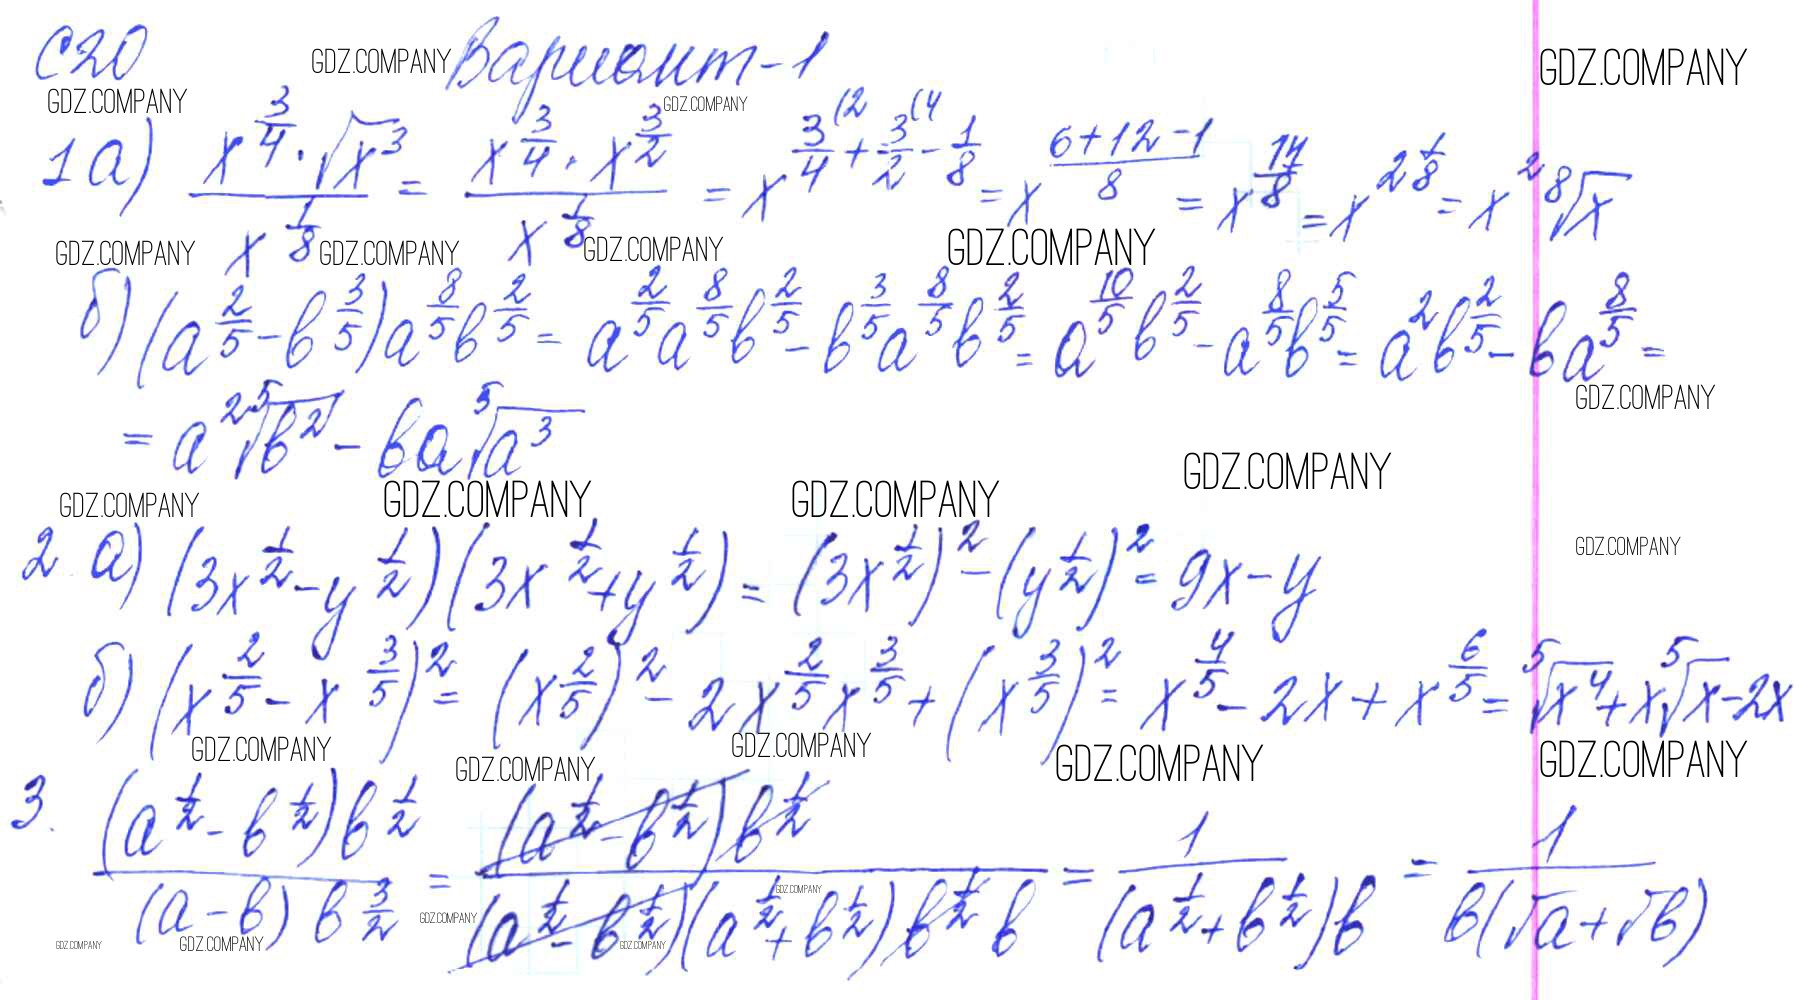 С20 GDZ.COMPANY Вариант-1 GDZ.COMPANY
GDZ.COMPANY GDZ.COMPANY
1а) (x^(3/4) · √x³)/(x^(1/8)) = (x^(3/4) · x^(3/2))/(x^(1/8)) = x^(3/4 (2 + 3/2 (4 - 1/8) = x^((6+12-1)/8) = x^(17/8) = x^(2 1/8) = x² ⁸√x
GDZ.COMPANY GDZ.COMPANY GDZ.COMPANY GDZ.COMPANY
б) (a^(2/5) - b^(3/5)) a^(8/5) b^(2/5) = a^(2/5) a^(8/5) b^(2/5) - b^(3/5) a^(8/5) b^(2/5) = a^(10/5) b^(2/5) - a^(8/5) b^(5/5) = a² b^(2/5) - b a^(8/5) =
GDZ.COMPANY
= a² ⁵√b² - ba ⁵√a³
GDZ.COMPANY GDZ.COMPANY GDZ.COMPANY GDZ.COMPANY
GDZ.COMPANY
2. а) (3x^(1/2) - y^(1/2))(3x^(1/2) + y^(1/2)) = (3x^(1/2))² - (y^(1/2))² = 9x - y
б) (x^(2/5) - x^(3/5))² = (x^(2/5))² - 2x^(2/5) x^(3/5) + (x^(3/5))² = x^(4/5) - 2x + x^(6/5) = ⁵√x⁴ + x ⁵√x - 2x
GDZ.COMPANY GDZ.COMPANY GDZ.COMPANY GDZ.COMPANY GDZ.COMPANY
3. ((a^(1/2) - b^(1/2)) b^(1/2))/((a - b) b^(3/2)) = ((a^(1/2) - b^(1/2)) b^(1/2))/((a^(1/2) - b^(1/2))(a^(1/2) + b^(1/2)) b^(1/2) b) = 1/((a^(1/2) + b^(1/2)) b) = 1/(b(√a + √b))
GDZ.COMPANY GDZ.COMPANY GDZ.COMPANY GDZ.COMPANY GDZ.COMPANY